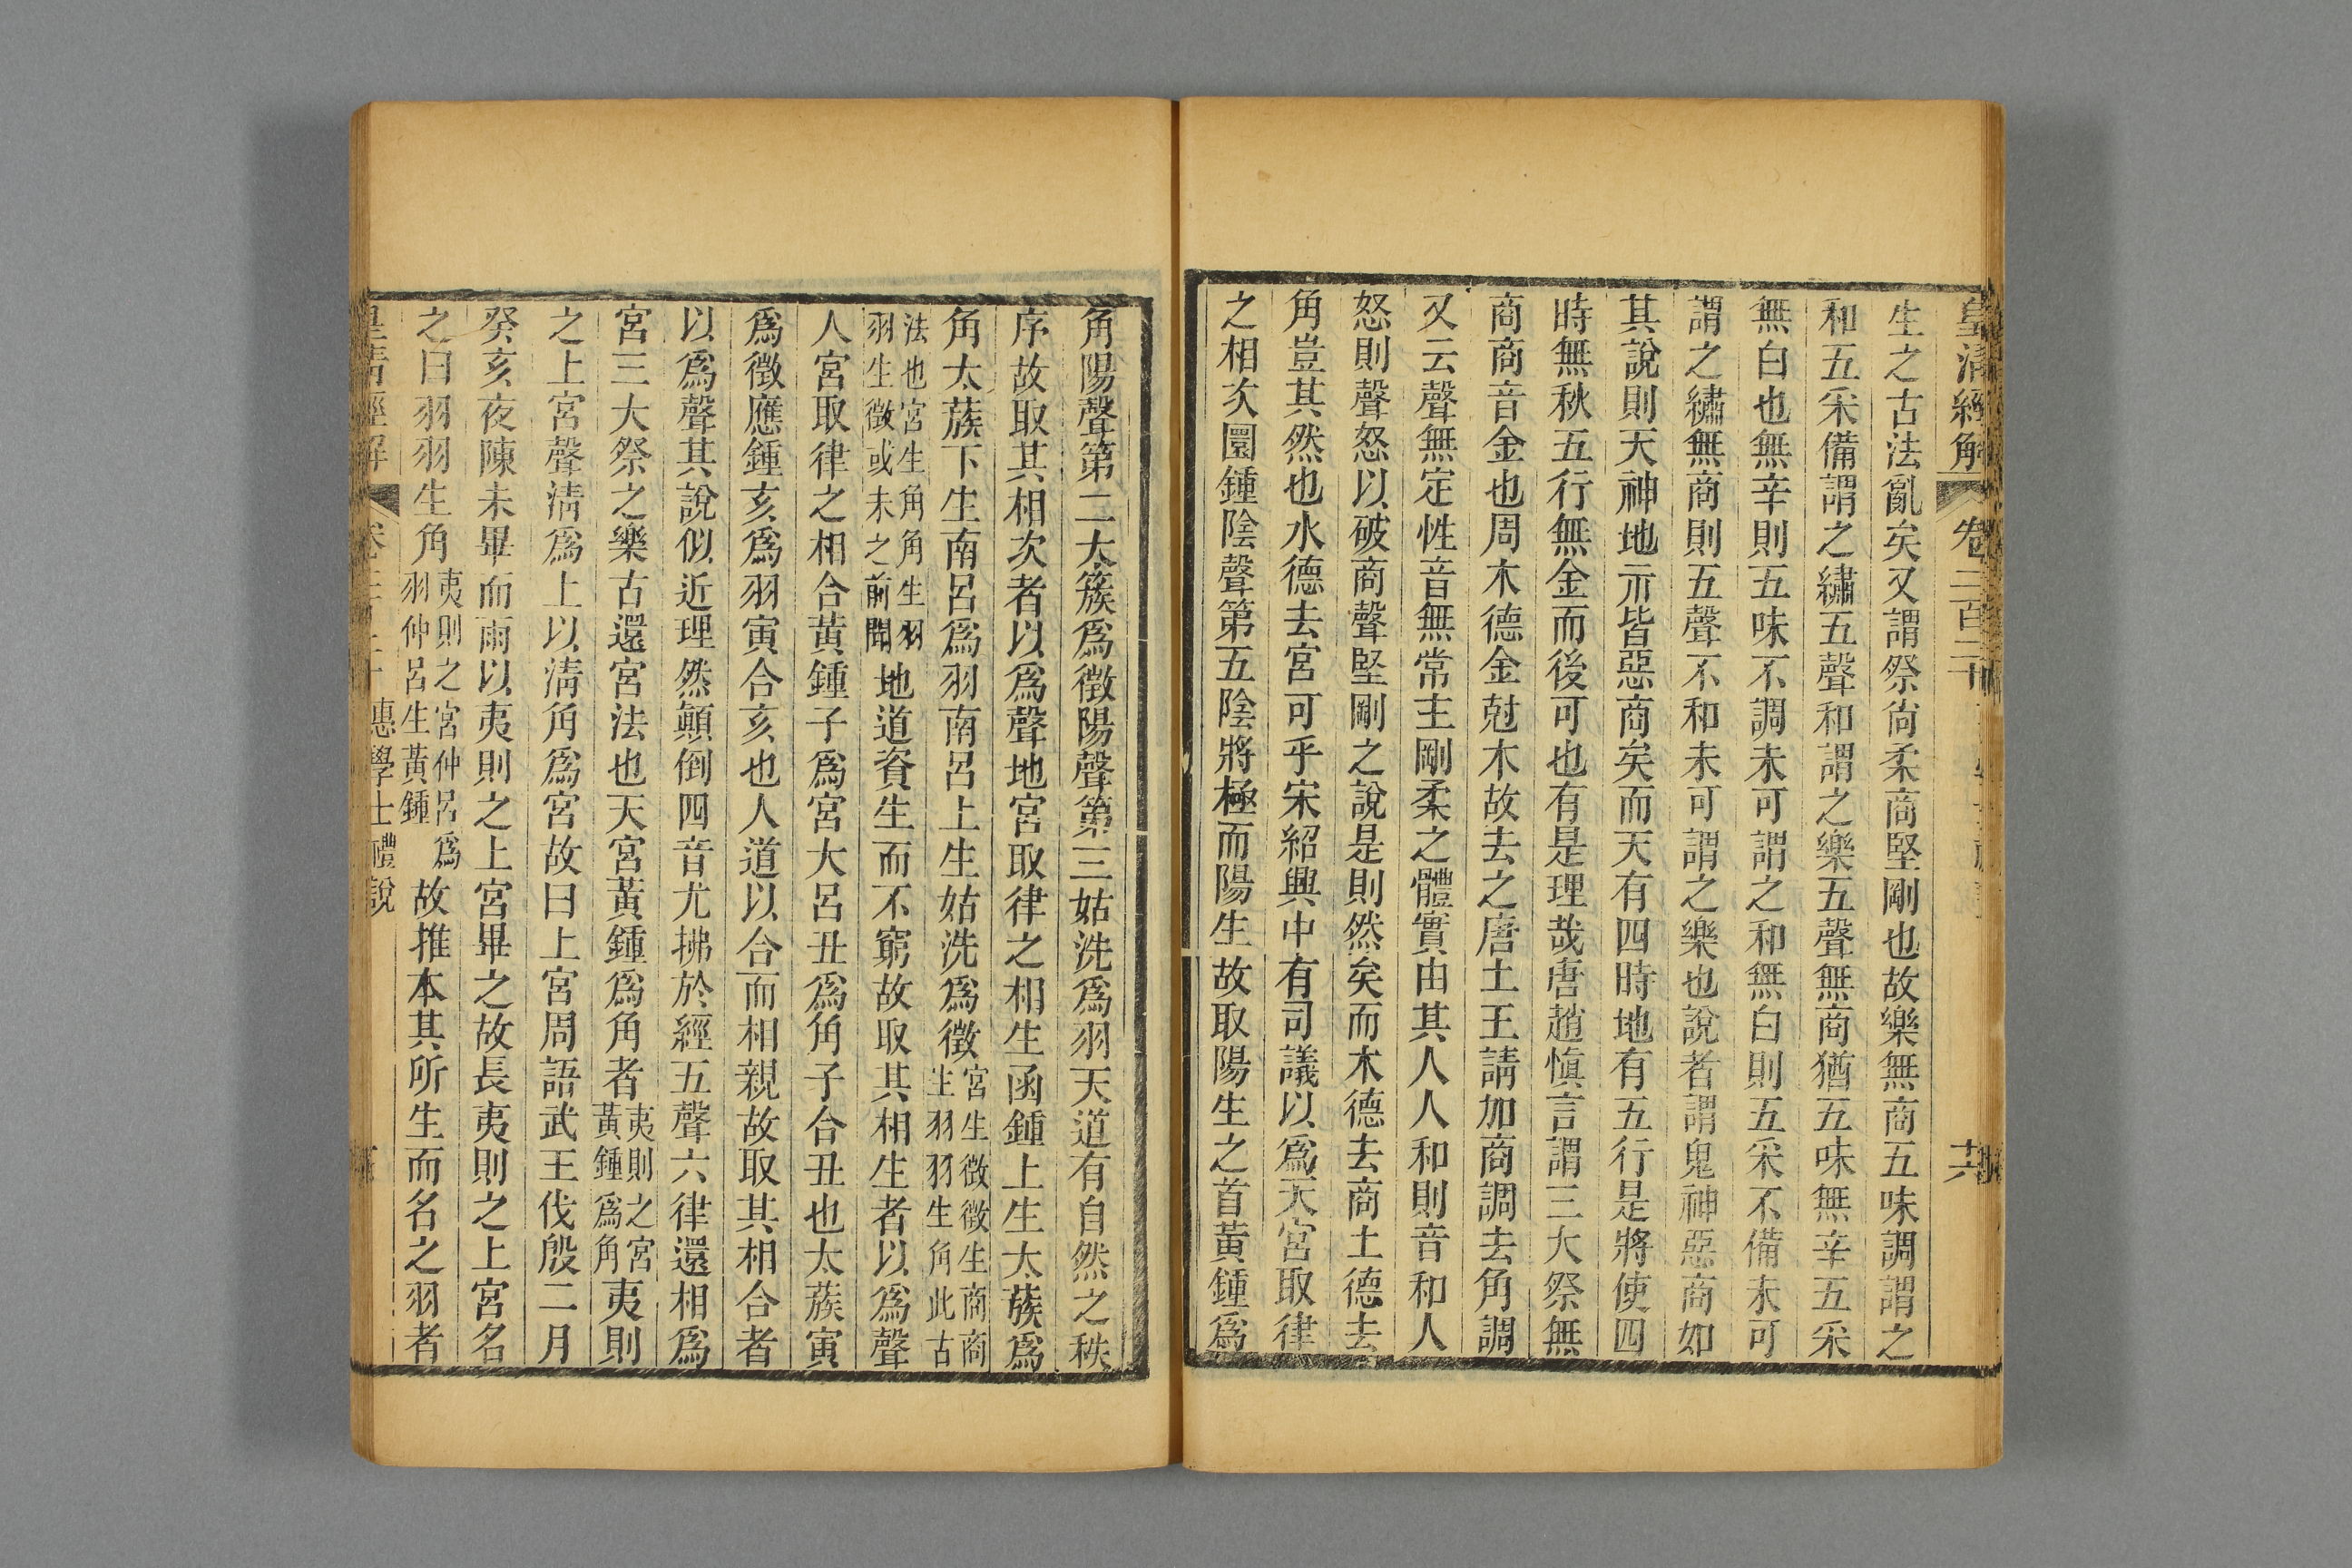 皇清經解 卷二百二十 十六
生之古法亂矣又謂祭尙柔商堅剛也故樂無商五味調謂之
和五采備謂之繡五聲和謂之樂五聲無商猶五味無辛五采
無白也無辛則五味不調未可謂之和無白則五采不備未可
謂之繡無商則五聲不和未可謂之樂也說者謂鬼神惡商如
其說則天神地示皆惡商矣而天有四時地有五行是將使四
時無秋五行無金而後可也有是理哉唐趙愼言謂三大祭無
商商音金也周木德金尅木故去之唐土王請加商調去角調
又云聲無定性音無常主剛柔之體實由其人人和則音和人
怒則聲怒以破商聲堅剛之說是則然矣而木德去商土德去
角豈其然也水德去宮可乎宋紹興中有司議以爲天宮取律
之相次圜鍾陰聲第五陰將極而陽生故取陽生之首黃鍾爲
角陽聲第二大簇爲徵陽聲第三姑洗爲羽天道有自然之秩
序故取其相次者以爲聲地宮取律之相生函鍾上生太蔟爲
角太蔟下生南呂爲羽南呂上生姑洗爲徵宮生徵徵生商商生羽羽生角此古
法也宮生角角生羽羽生徵或未之前聞地道資生而不窮故取其相生者以爲聲
人宮取律之相合黃鍾子爲宮大呂丑爲角子合丑也太蔟寅
爲徵應鍾亥爲羽寅合亥也人道以合而相親故取其相合者
以爲聲其說似近理然顚倒四音尤拂於經五聲六律還相爲
宮三大祭之樂古還宮法也天宮黃鍾爲角者夷則之宮黃鍾爲角夷則
之上宮聲淸爲上以淸角爲宮故曰上宮周語武王伐殷二月
癸亥夜陳未畢而雨以夷則之上宮畢之故長夷則之上宮名
之曰羽羽生角夷則之宮仲呂爲羽仲呂生黃鍾故推本其所生而名之羽者
皇清經解 卷二百二十 惠學士禮說